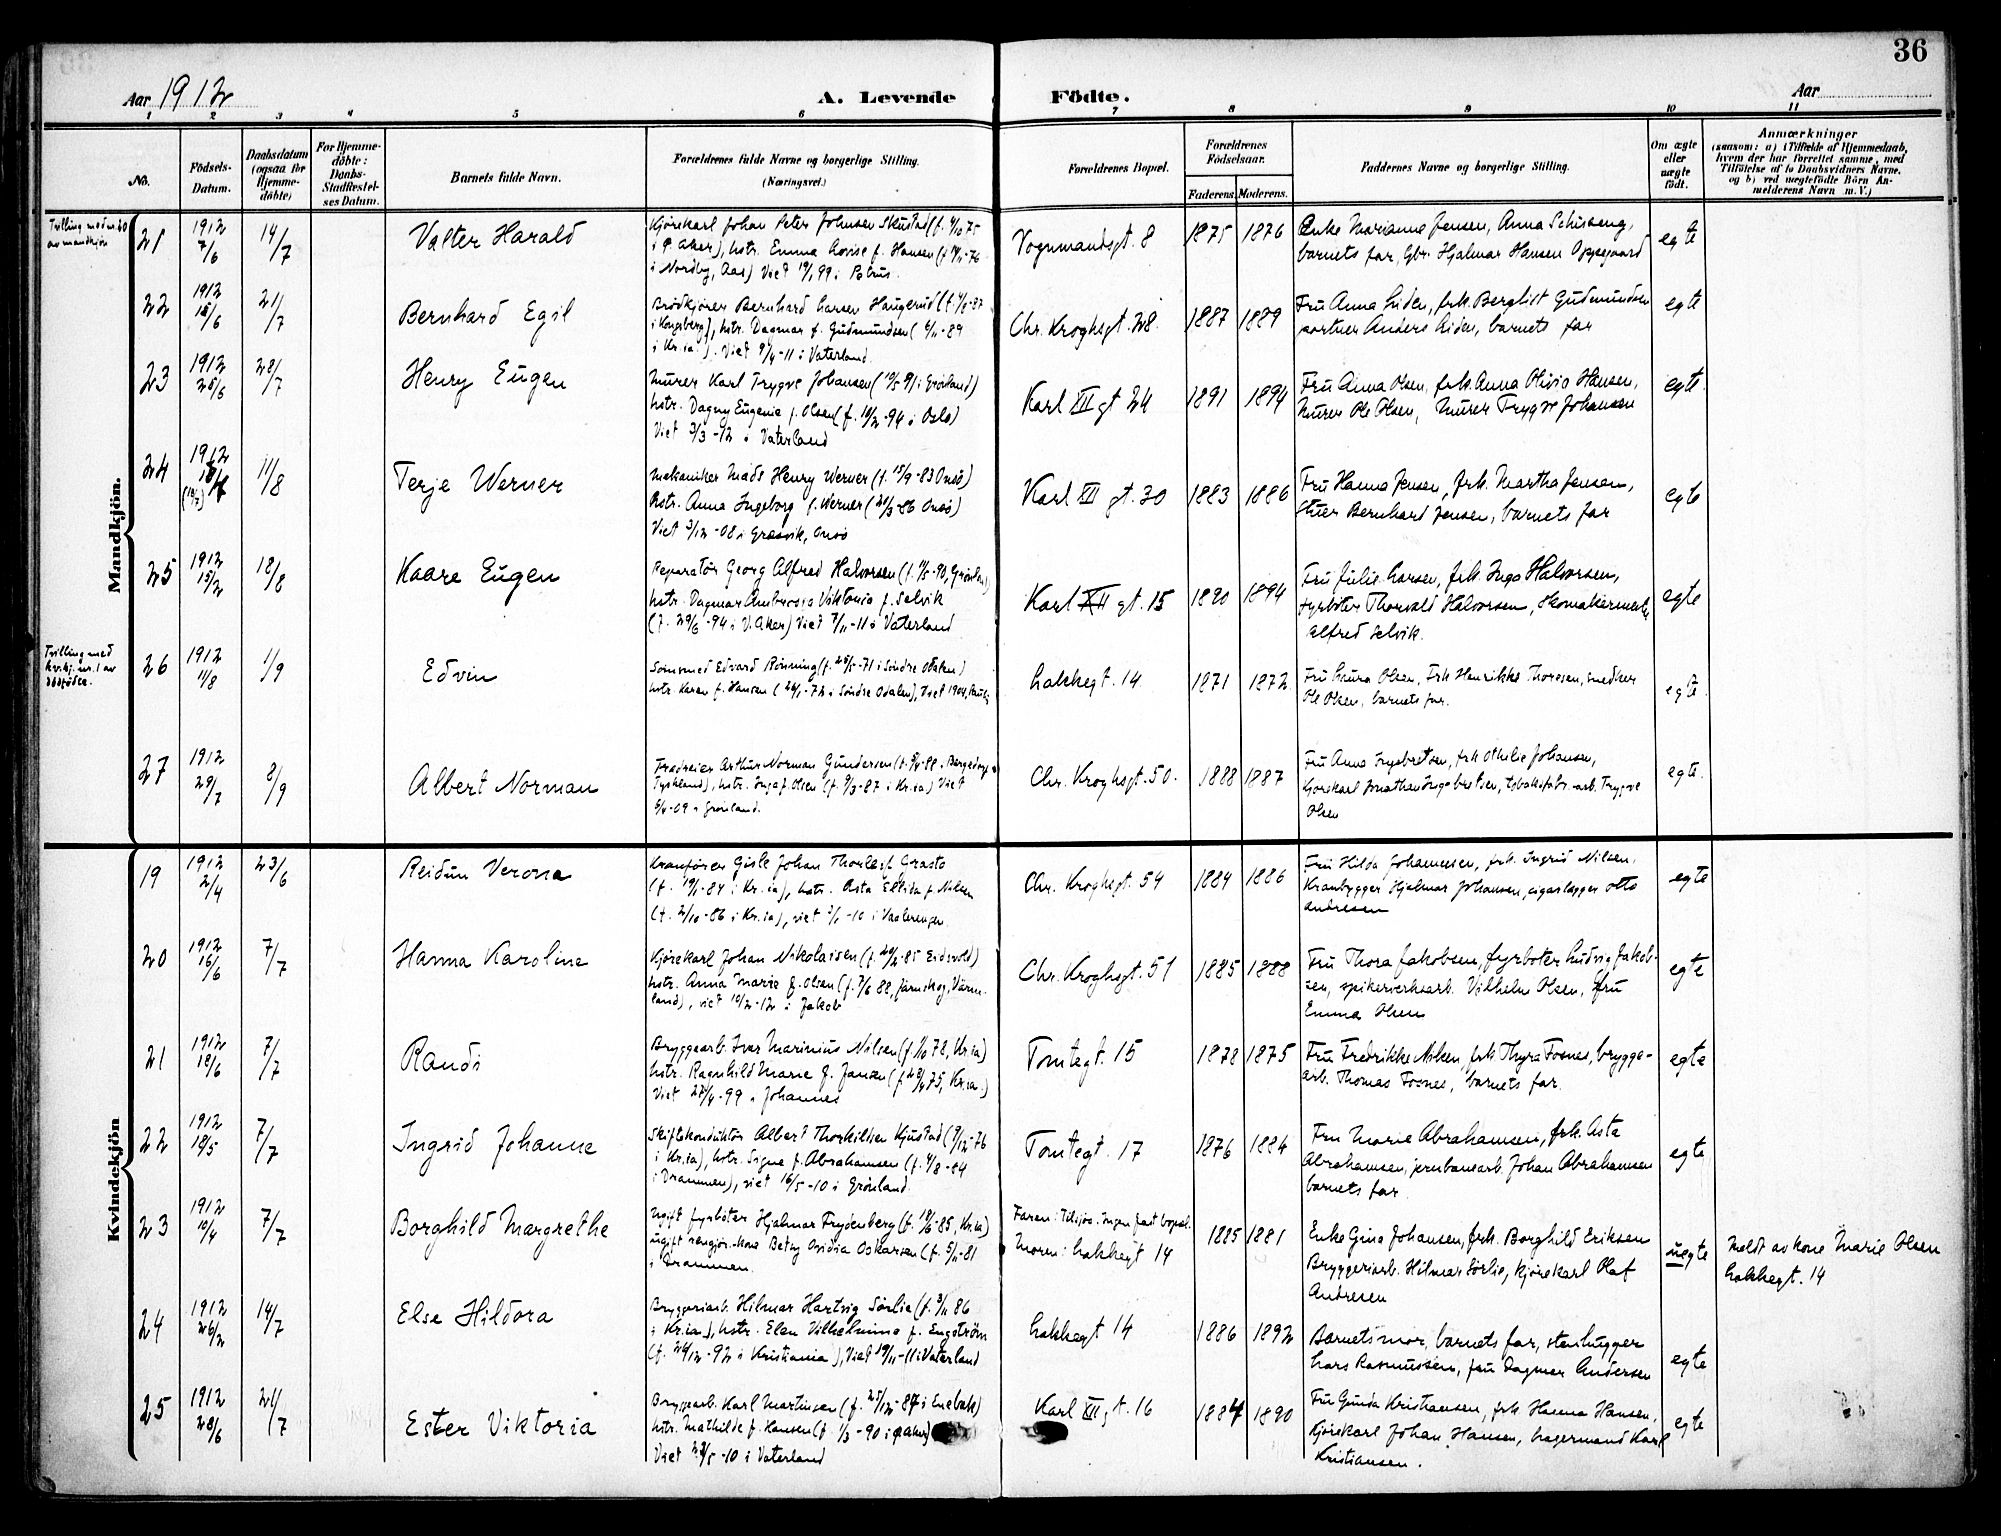 36
Aar 1912
A. Levende Födte.
Aar
1 2 3 4 5 6 7 8 9 10 11
No.
Födsels-
Datum.
Daabsdatum
(ogsaa for
Hjemme-
döbte)
For Hjemme-
döbte:
Daabs-
Stadfæstel-
ses Datum.
Barnets fulde Navn.
Forældrenes fulde Navne og borgerlige Stilling.
(Næringsvei.)
Forældrenes Bopæl.
Forældrenes
Födselsaar.
Faderens. Moderens.
Faddernes Navne og borgerlige Stilling.
Om ægte
eller
uægte
födt.
Anmærkninger
(saasom: a) i Tilfælde af Hjemmedaab,
hvem der har forrettet samme, med
Tilföielse af to Daabsvidners Navne,
og b) ved uægtefödte Börn An-
melderens Navn m. V.)
Mandkjön.
Tvilling med
av mandkjön
21
1912
7/6
14/7
Valter Harald
Kjörekarl Johan Peter Johnsen Skustad (f. 4/10 75
i Ø. Aker), hstr. Emma Lovise f. Hansen (f. 14/11-76
i Nordby, Aas) Viet 19/1 99 i Petrus.
Vognmandsgt. 8
1875 1876
Enke Marianne Jensen, Anna
barnets far, Gbr. Hjalmar Hansen Oppegaard
egte
22
1912
15/6
21/7
Bernhard Egil
Brödkjörer Bernhard Larsen Haugerud (f. 4/8-87
i Kongsberg), hstr. Dagmar f. Gudmundsen (6/11-89
i Kr.ia). Viet 9/4-11 i Vaterland.
Chr. Kroghsgt. 28.
1887 1889
Fru Anna Liden, frk. Berglist Gudmundsen
portner Anders Liden, barnets far
egte
23
1912
25/6
28/7
Henry Eugen
Murer Karl Trygve Johansen (19/5 91 i Grönland)
hstr. Dagny Eugenie f. Olsen (f. 10/2-94 i Oslo)
Viet 3/3-12 i Vaterland
Karl XII gt 24
1891 1894
Fru Anna Olsen, frk. Anna Olivia Hansen,
Murer Ole Olsen, Murer Trygve Johansen
egte.
24
1912
(18/7)
11/8
Terje Werner
Mekaniker Mads Henry Werner (f. 15/9-83 Onsö)
hstr. Anna Ingeborg f. Werner (21/3-86 Onsö)
Viet 3/12-08 i Græsvik, Onsö
Karl XII gt. 30
1883 1886
Fru Hanna Jensen, frk. Martha Jensen,
Stuer Bernhard Jensen, barnets far
egte
25
1912
15/2
18/8
Kaare Eugen
Reparatör Georg Alfred Halvorsen (f. 7/5-90, Grönland)
hstr. Dagmar Ambrosia Viktoria f. Selvik
(f. 29/6-94 i V. Aker) Viet 7/11-11 i Vaterland
Karl XII gt. 15
1890 1894
Fru Julie Larsen, frk. Inga Halvorsen,
fyrböter Thorvald Halvorsen, Skomakermester
Alfred Selvik.
egte
Tvilling med
kv.kj. nr. 1 av
dödfödte.
26
1912
11/8
1/9
Edvin
Edvard Rönning (f. 25/5-71 i Söndre Odalen)
hstr. Karen f. Hansen (24/1-72 i Söndre Odalen), Viet 1904
Lakkegt. 14
1871 1872
Fru Laura Olsen, Frk Henrikke Thoresen, snedker
Ole Olsen, barnets far.
egte.
27
1912
29/7
8/9
Albert Norman
Arthur Norman Gundersen (f. 9/4-88 i
Tyskland), hstr. Inga f. Olsen (f. 9/3-87 i Kr.ia) Viet
5/4-09 i Grönland.
Chr. Kroghsgt. 50.
1888 1887
Fru Anna Ingebretsen, frk Othilie Johansen,
Kjörekarl Jonathan Ingebretsen, tobaksfabr.-arb. Trygve
Olsen
egte.
Kvindekjön
19
1912
2/4
23/6
Reidun Verona
Kranförer Gisle Johan Thorleif Grasto
(f. 19/1-84 i Kr.ia), hstr. Asta Elida f. Nilsen
(f. 2/10-86 i Kr.ia), viet 1/1-10 i Vaalerengen
Chr. Kroghsgt. 54
1884 1886
Fru Hilda Johannesen, frk. Ingrid Nilsen.
Kranbygger Hjalmar Johansen, Otto
Andresen
egte
20
1912
16/6
7/7
Hanna Karoline
Kjörekarl Johan Nikolaisen (f. 20/2-85 Eidsvold)
hstr. Anna Marie f. Olsen (f. 7/6 88, Järnskog, Värm-
land), viet 10/2-12 i Jakob
Chr. Kroghsgt. 51
1885 1888
Fru Thora Jakobsen, fyrböter Ludvig Jakob-
sen, spikerverksarb. Vilhelm Olsen, fru
Emma Olsen
egte
21
1912
18/6
7/7
Randi
Bryggearb. Ivar Marinius Nilsen (f. 1/10 78, Kr.ia)
hstr. Ragnhild Marie f. Jansen (f. 28/4 75, Kr.ia.)
Viet 27/4-99 i Johannes
Tomtegt. 15
1878 1875
Fru Fredrikke Nilsen, frk Thyra Fosnes, brygge-
arb. Thomas Fosnes, barnets far.
egte
22
1912
18/5
7/7
Ingrid Johanne
Skiftekonduktör Albert Thorkildsen Kjustad (9/12-76
i Kr.ia), hstr. Signe f. Abrahamsen (f. 4/8-84
i Drammen), viet 16/5-10 i Grönland.
Tomtegt. 17
1876 1884
Fru Marie Abrahamsen, frk. Asta
Abrahamsen, jernbanearb. Johan Abrahamsen
barnets far.
egte
23
1912
10/4
7/7
Borghild Margrethe
Ugift fyrböter Hjalmar Frydenberg (f. 18/6-85, Kr.ia)
ugift rengjör.kone Betsy Ovidia Oskarsen (f. 5/11-81
i Drammen.
Faren: Tilsjös. Ingen fast bopæl.
Moren: Lakkegt 14
1885 1881
Enke Gina Johansen, frk. Borghild Eriksen
Bryggeriarb. Hilmar Sörlie, kjörekarl Olaf
Andresen
uegte
Meldt av kone Marie Olsen
Lakkegt. 14
24
1912
26/2
14/7
Else Hildora
Bryggeriarb. Hilmar Hartvig Sörlie (f. 3/11 86
i Kr.ia), hstr. Elen Vilhelmine f. Engström
(f. 24/12-92 i Kristiania), Viet 19/11-11 i Vaterland
Lakkegt 14
1886 1892
Barnets mor, barnets far, stenhugger
Lars Rasmussen, fru Dagmar Andersen
egte
25
1912
28/6
21/7
Ester Viktoria
Bryggearb. Karl Martinsen (f. 25/12-87 i Enebak)
hstr. Mathilde f. Hansen (f. 1/3-90 i Ø Aker)
Viet 28/5-10 i Vaterland
Karl XII gt. 16
1887 1890
Fru Gunda Kristiansen, frk Hanna Hansen,
Kjörekarl Johan Hansen, Lagermand Karl
Kristiansen.
egte